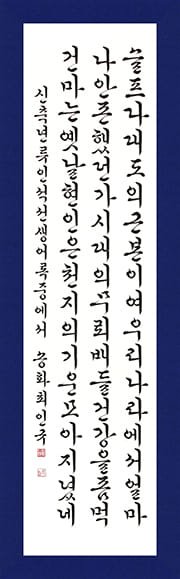 슬프다 대도의 근본이여 우리나라에서 얼마
나 안존했던가 시대의 무뢰배들 건강을 좀먹
건마는 옛날 현인은 천지의 기운 모아 지녔네
신축년 류인석 선생 어록 중에서